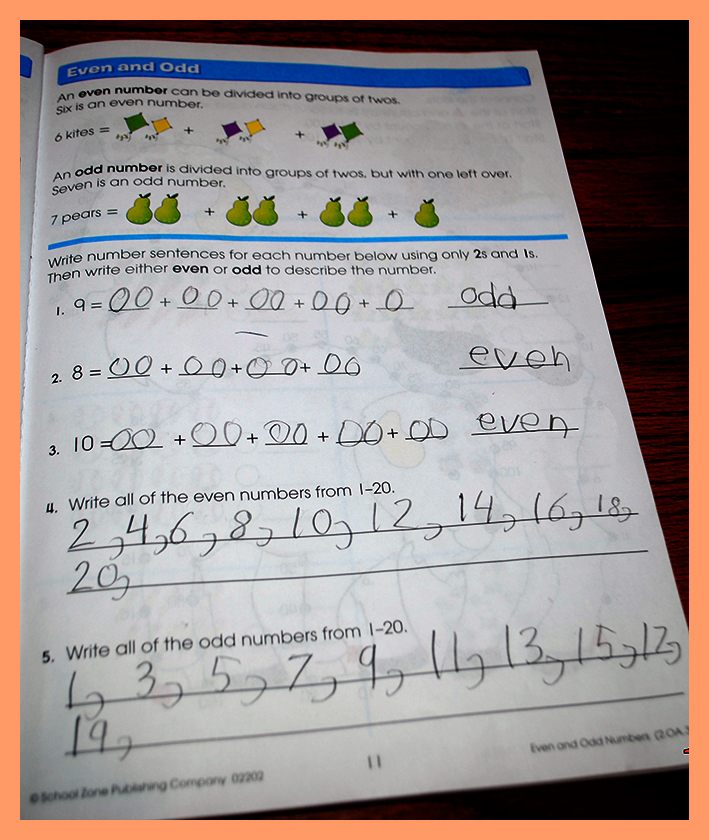 Even and Odd
An even number can be divided into groups of twos.
Six is an even number.
6 kites = + +
An odd number is divided into groups of twos, but with one left over.
Seven is an odd number.
7 pears = + + +
Write number sentences for each number below using only 2s and 1s.
Then write either even or odd to describe the number.
1. 9 = 00 + 00 + 00 + 00 + 0 odd
2. 8 = 00 + 00 + 00 + 00 even
3. 10 = 00 + 00 + 00 + 00 + 00 even
4. Write all of the even numbers from 1-20.
2, 4, 6, 8, 10, 12, 14, 16, 18,
20,
5. Write all of the odd numbers from 1-20.
1, 3, 5, 7, 9, 11, 13, 15, 17,
19,
Even and Odd Numbers (2.OA.3
11
© School Zone Publishing Company 02202